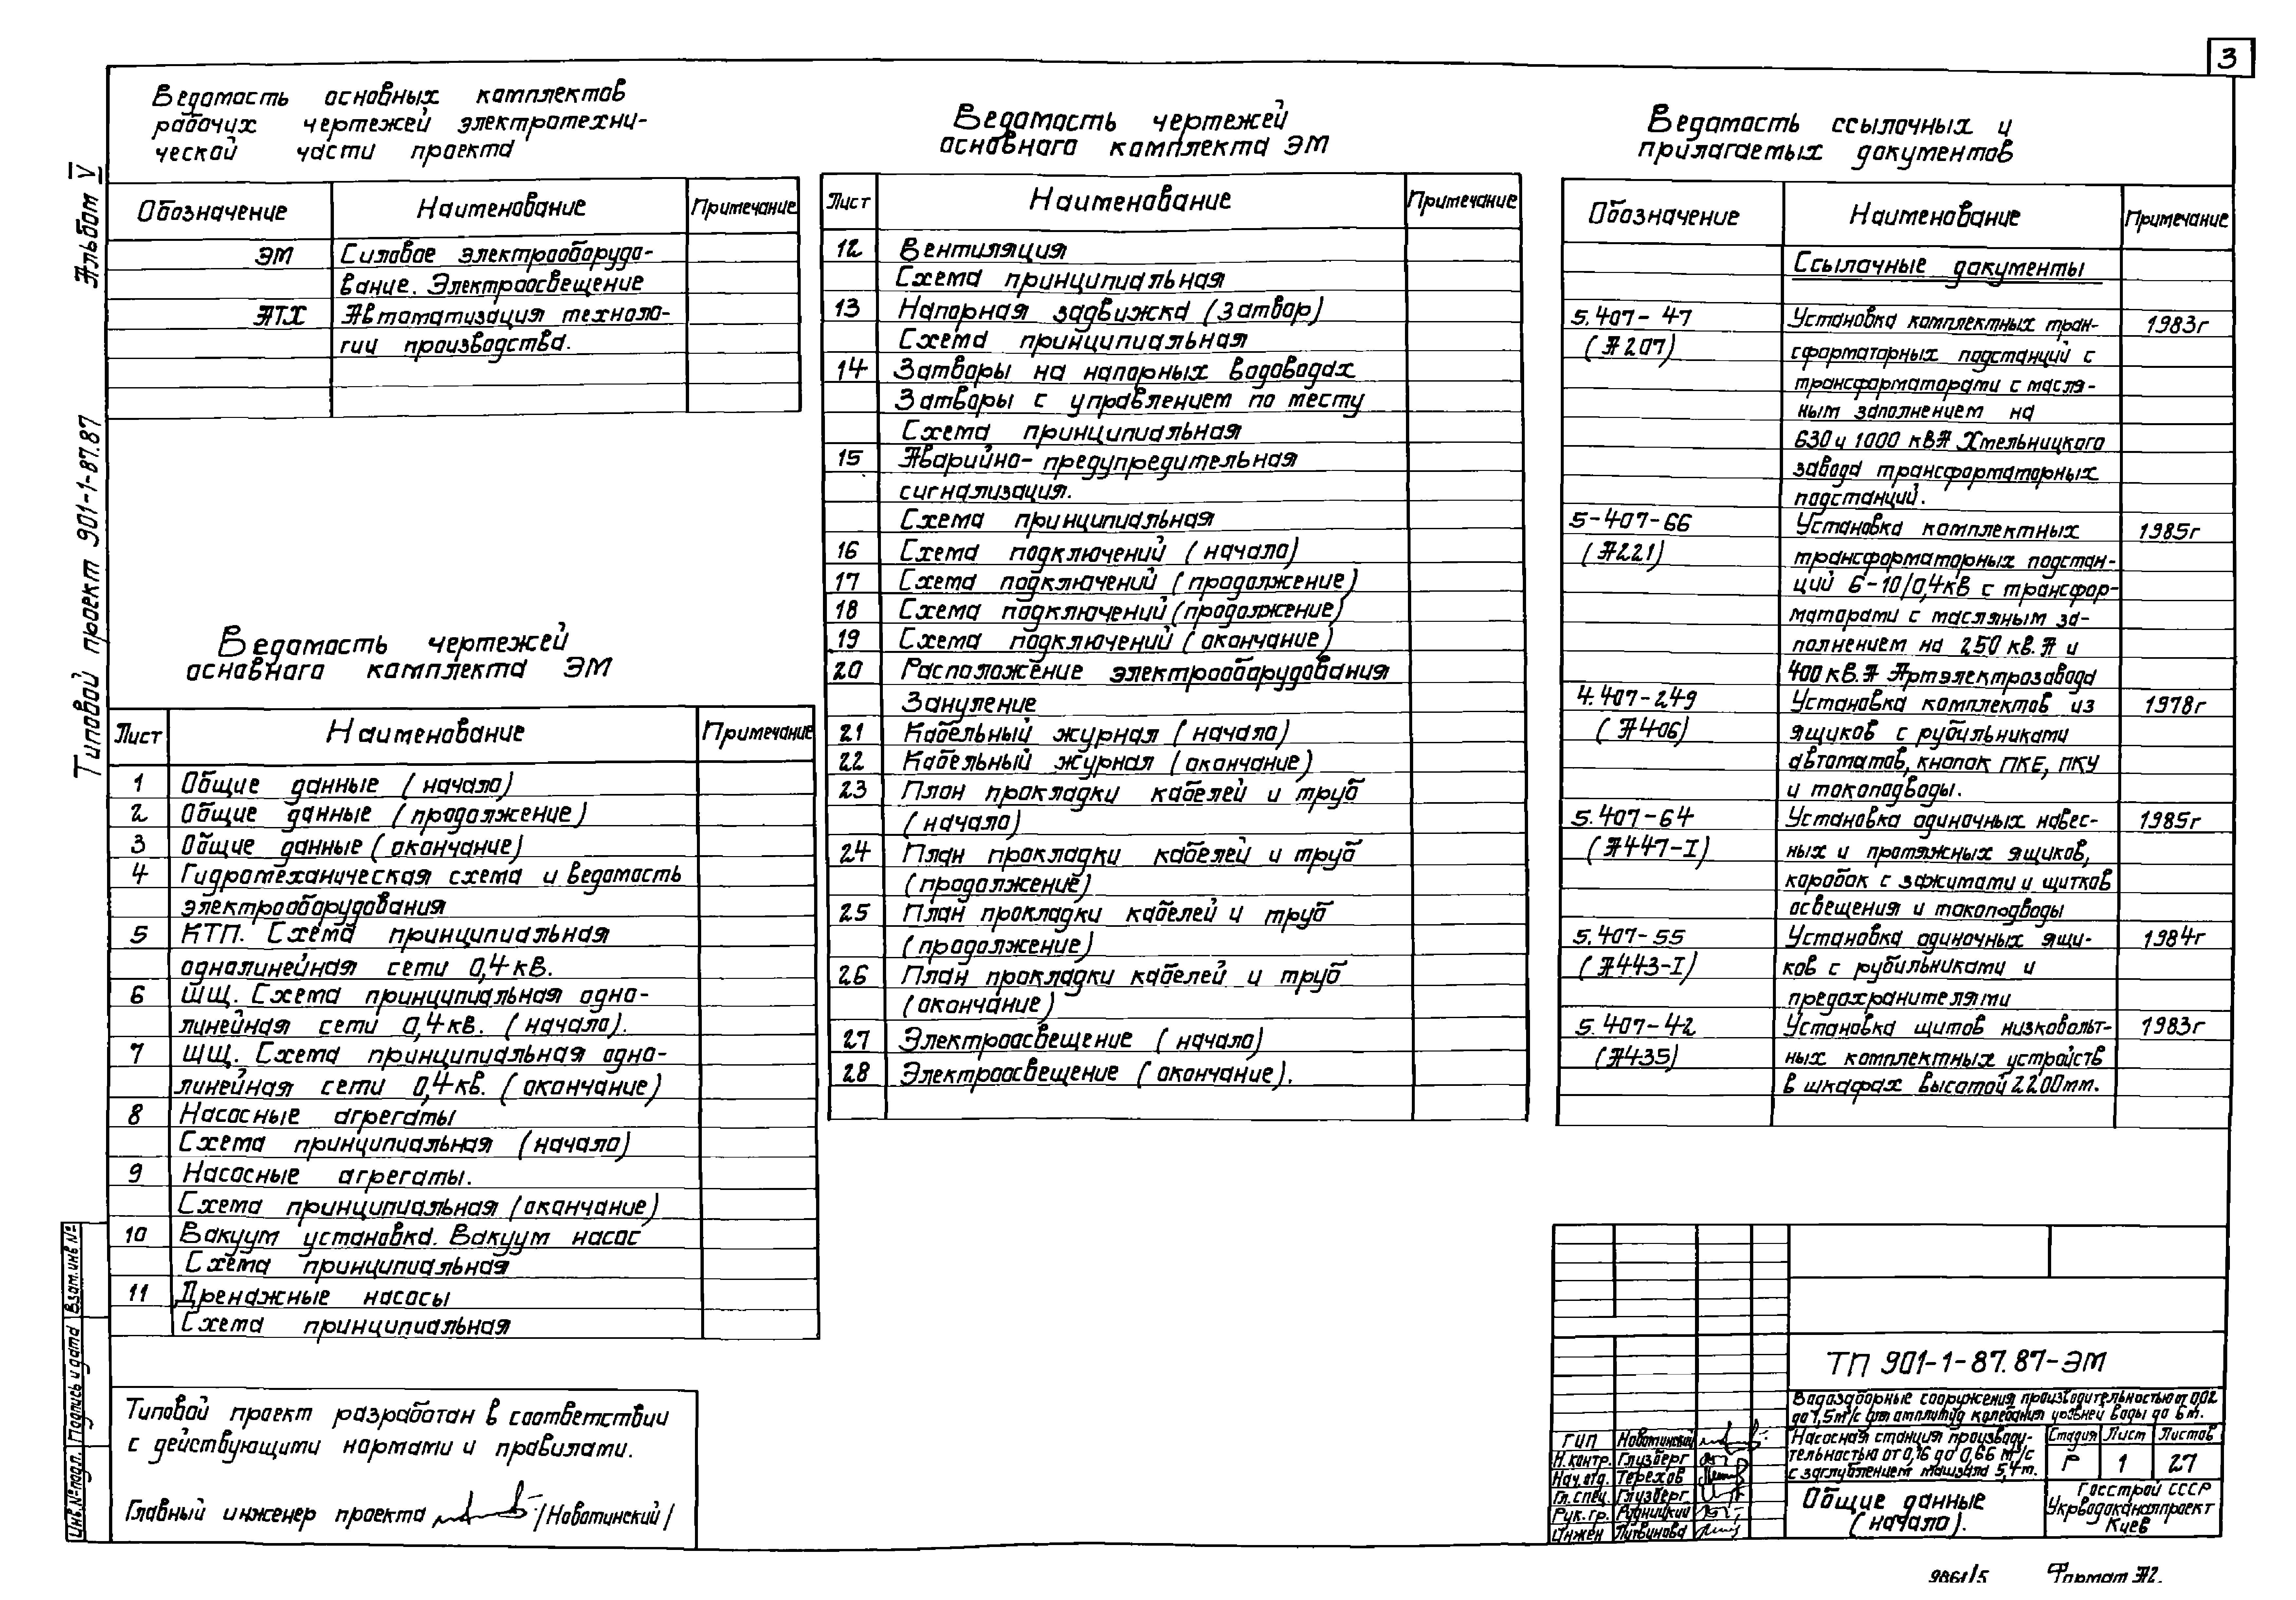 3
Альбом V
Типовой проект 901-1-87.87
Ведомость основных комплектов
рабочих чертежей электротехни-
ческой части проекта
Обозначение Наименование Примечание
ЭМ Силовое электрооборудо-
вание. Электроосвещение
АТХ Автоматизация техноло-
гии производства.
Ведомость чертежей
основного комплекта ЭМ
Лист Наименование Примечание
1 Общие данные (начало)
2 Общие данные (продолжение)
3 Общие данные (окончание)
4 Гидромеханическая схема и ведомость
электрооборудования
5 КТП. Схема принципиальная
однолинейная сети 0,4 кв.
6 ШЩ. Схема принципиальная одно-
линейная сети 0,4 кв. (начало).
7 ШЩ. Схема принципиальная одно-
линейная сети 0,4 кв. (окончание)
8 Насосные агрегаты
Схема принципиальная (начало)
9 Насосные агрегаты.
Схема принципиальная (окончание)
10 Вакуум установка. Вакуум насос
Схема принципиальная
11 Дренажные насосы
Схема принципиальная
Типовой проект разработан в соответствии
с действующими нормами и правилами.
Главный инженер проекта /Новотинский/
Ведомость чертежей
основного комплекта ЭМ
Лист Наименование Примечание
12 Вентиляция
Схема принципиальная
13 Напорная задвижка (затвор)
Схема принципиальная
14 Затворы на напорных водоводах
Затворы с управлением по месту
Схема принципиальная
15 Аварийно-предупредительная
сигнализация.
Схема принципиальная
16 Схема подключений (начало)
17 Схема подключений (продолжение)
18 Схема подключений (продолжение)
19 Схема подключений (окончание)
20 Расположение электрооборудования
Зануление
21 Кабельный журнал (начало)
22 Кабельный журнал (окончание)
23 План прокладки кабелей и труб
(начало)
24 План прокладки кабелей и труб
(продолжение)
25 План прокладки кабелей и труб
(продолжение)
26 План прокладки кабелей и труб
(окончание)
27 Электроосвещение (начало)
28 Электроосвещение (окончание).
Ведомость ссылочных и
прилагаемых документов
Обозначение Наименование Примечание
Ссылочные документы
5.407-47 Установка комплектных тран- 1983г
(А207) сформаторных подстанций с
трансформаторами с масля-
ным заполнением на
630 и 1000 кВА Хмельницкого
завода трансформаторных
подстанций.
5-407-66 Установка комплектных 1985г
(А221) трансформаторных подстан-
ций 6-10/0,4кВ с трансфор-
маторами с масляным за-
полнением на 250 кв.А и
400 кв.А Артэлектрозавода
4.407-249 Установка комплектов из 1978г
(А406) ящиков с рубильниками
автоматов, кнопок ПКЕ, ПКУ
и токоподводы.
5.407-64 Установка одиночных навес- 1985г
(А447-I) ных и протяжных ящиков,
коробок с зажимами и щитков
освещения и токоподводы
5.407-55 Установка одиночных ящи- 1984г
(А443-I) ков с рубильниками и
предохранителями
5.407-42 Установка щитов низковольт- 1983г
(А435) ных комплектных устройств
в шкафах высотой 2200мм.
ТП 901-1-87.87-ЭМ
Водозаборные сооружения производительностью от 0,02
до 1,5м³/с для амплитуд колебания уровней воды до 6м.
ГИП Новотинский
Н.контр. Глузберг
Нач.отд. Терехов
Гл.спец. Глузберг
Рук.гр. Рудницкий
Инжен Литвинова
Насосная станция производи-
тельностью от 0,16 до 0,66 м³/с
с заглублением машзала 5,4м.
Стадия Лист Листов
Р 1 27
Общие данные
(начало).
Госстрой СССР
Укрводоканалпроект
Киев
Взам.инв.№
Подпись и дата
Инв.№подл.
9861/5 Формат А2.